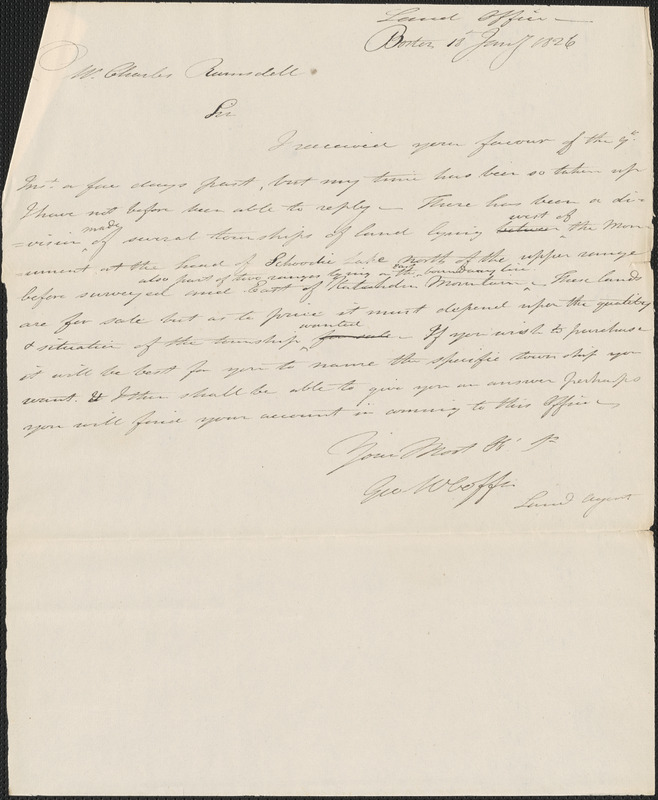 Land Office
Boston 18 Jany 1826
Mr. Charles Ramsdell
Sir
I received your favour of the 9th
Inst. a few days past, but my time has been so taken up
I have not before been able to reply - There has been a di-
made west of
=vision of several townships of land lying between the Mon-
ument at the head of Schoodic Lake north of the upper range
also part of two ranges lying on the boundary line
before surveyed and East of Katahdin Mountain - These lands
are for sale but as to price it must depend upon the quality
wanted
& situation of the township for sale - If you wish to purchase
it will be best for you to name the specific township you
want. & I then shall be able to give you an answer perhaps
you will find your account in coming to this Office -
Your Most
Geo W Coffin
Land Agent